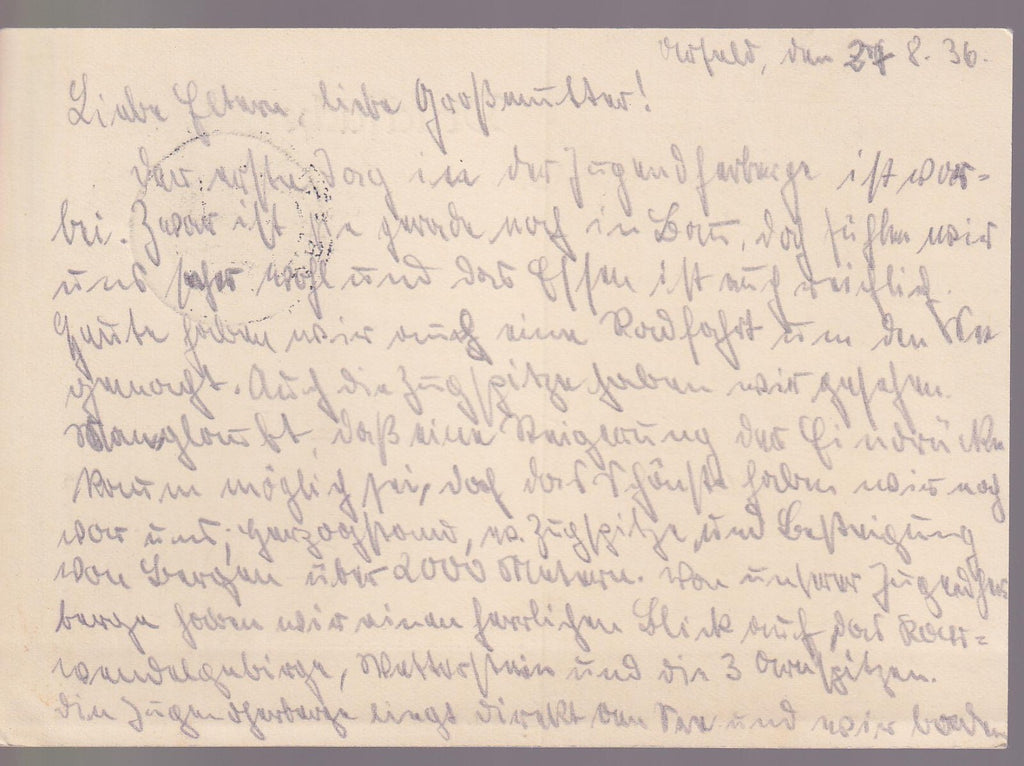 Urfeld, den 27 8. 36.
Liebe Eltern, liebe Großmutter!
Der erste Tag in der Jugendherberge ist vor-
bei. Zwar ist sie gerade noch in Bau, doch fühlen wir
uns sehr wohl und das Essen ist auch reichlich.
Heute haben wir auch eine Radfahrt um den See
gemacht. Auch die Zugspitze haben wir gesehen.
Man glaubt, daß eine Steigerung der Eindrücke
kaum möglich sei, doch das Schönste haben wir noch
vor uns; Herzogstand, Zugspitze, und Besteigung
von Bergen über 2000 Metern. Von unserer Jugendher
berge haben wir einen herrlichen Blick auf das Kar-
wendelgebirge, Wetterstein und die 3 Arnspitzen.
Die Jugendherberge liegt direkt am See und wir baden